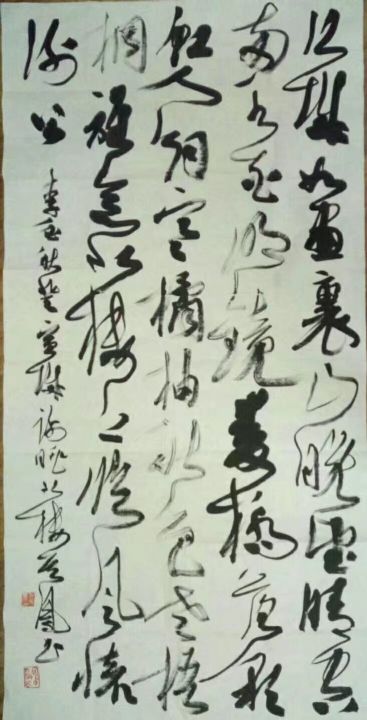 江城如畫裏山晚望晴空
兩水夾明鏡雙橋落彩
虹人烟寒橘柚秋色老梧
桐誰念北樓上臨風懷
謝公
李白秋登宣城謝朓北樓 鳳书